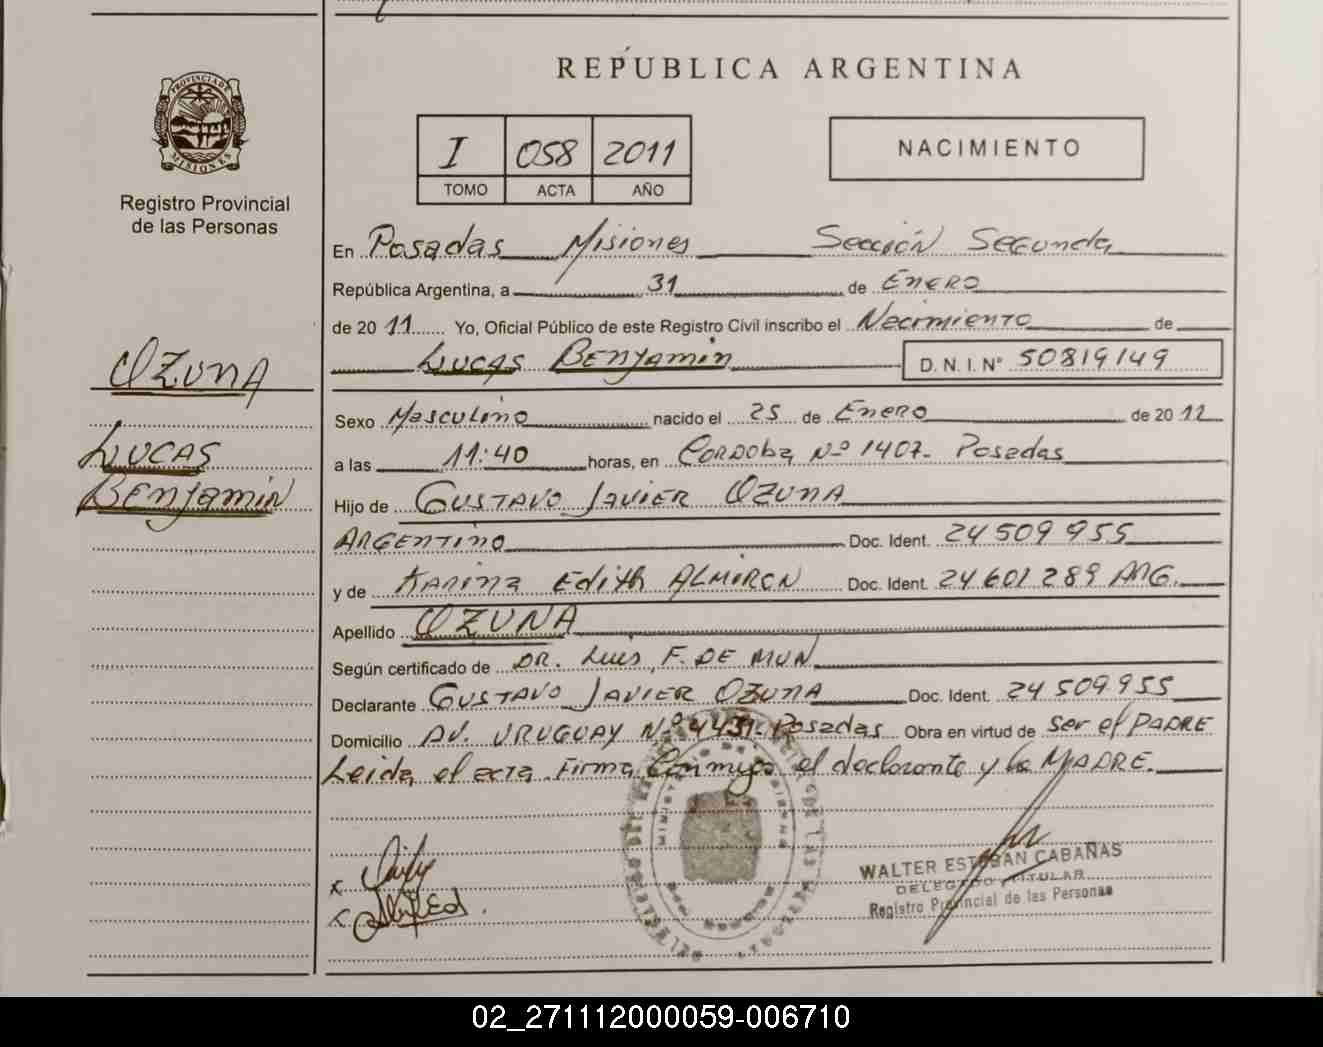 REPÚBLICA ARGENTINA
PROVINCIA DE
MISIONES
Registro Provincial
de las Personas
I 058 2011
TOMO ACTA AÑO
NACIMIENTO
En Posadas Misiones Sección Segunda
República Argentina, a 31 de Enero
de 2011 Yo, Oficial Público de este Registro Civil inscribo el Nacimiento de
Lucas Benjamin D.N.I. Nº 50819149
OZUNA
Lucas
Benjamin
Sexo Masculino nacido el 25 de Enero de 2011
a las 11:40 horas, en Cordoba Nº 1407- Posadas
Hijo de Gustavo Javier Ozuna
Argentino Doc. Ident. 24 509 955
y de Karina Edith Almiron Doc. Ident. 24.601 289 ARG.
Apellido OZUNA
Según certificado de DR. Luis F. DE MUN
Declarante Gustavo Javier Ozuna Doc. Ident. 24 509.955
Domicilio AV. URUGUAY Nº 4431- Posadas Obra en virtud de ser el PADRE
Leida el acta Firma Conmigo el declarante y la MADRE.
WALTER ESTEBAN CABAÑAS
DELEGADO TITULAR
Registro Provincial de las Personas
02_271112000059-006710